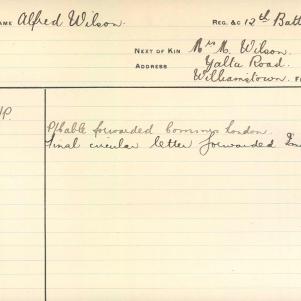 NAME Alfred Wilson. REG. &C 12th Batt
NEXT OF KIN Mrs M. Wilson.
ADDRESS Yalta Road.
Williamstown.
P/Cable forwarded London.
Final circular letter forwarded